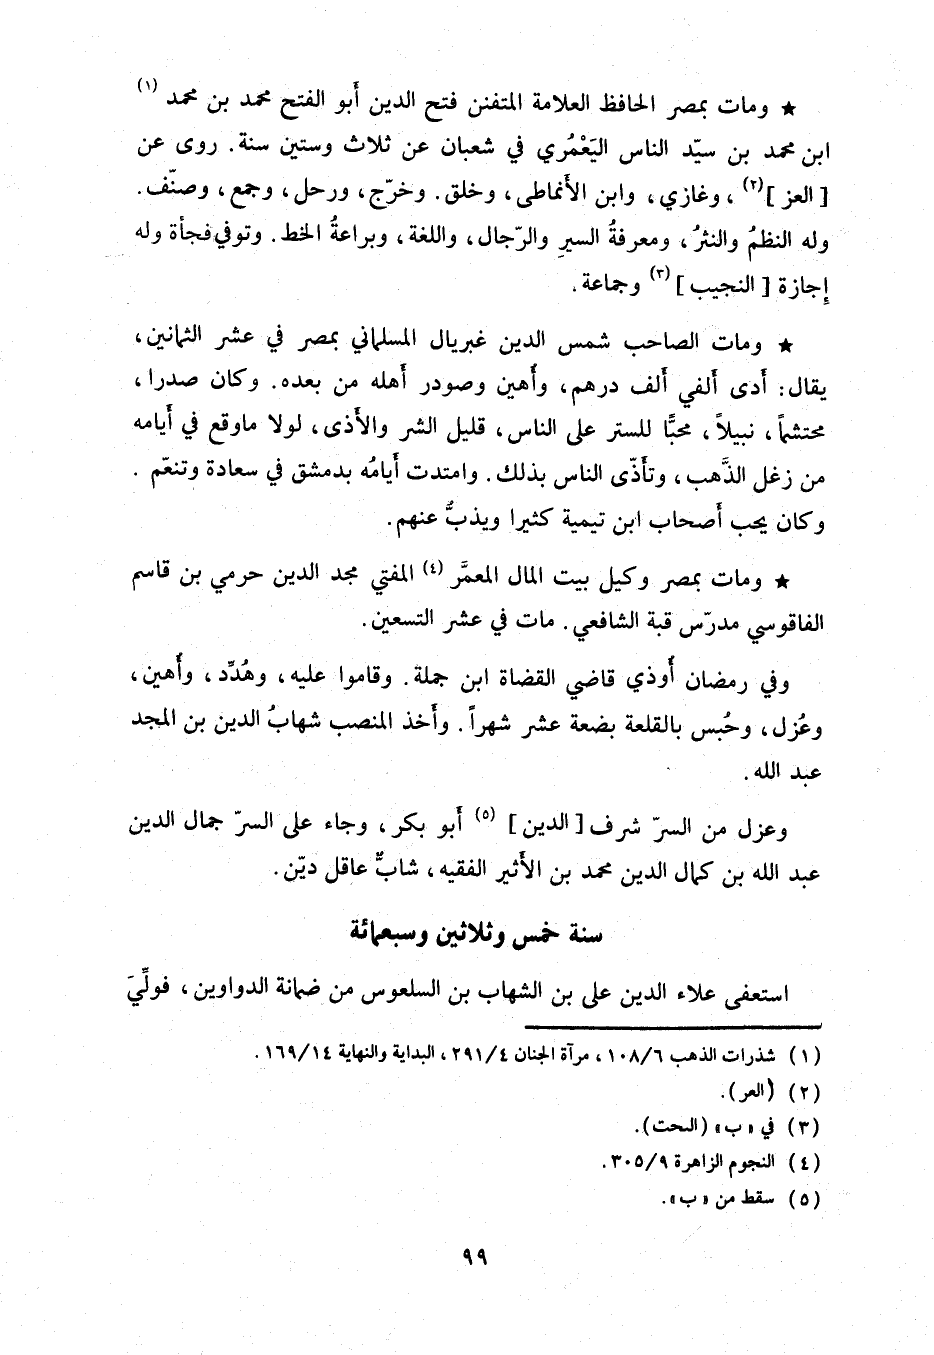 ★ ومات بمصر الحافظ العلامة المتفنن فتح الدين أَبو الفتح محمد بن محمد (١)
ابن محمد بن سيّد الناس اليَعْمُري في شعبان عن ثلاث وستين سنة. روى عن
[العز] (٢)، وغازي، وابن الأَنماطى، وخلق. وخرّج، ورحل، وجمع، وصنّف.
وله النظمُ والنثرُ، ومعرفةُ السيرِ والرّجال، واللغة، وبراعةُ الخط. وتوفي فجأة وله
إِجازة [النجيب] (٣) وجماعة.
★ ومات الصاحب شمس الدين غبريال المسلماني بمصر في عشر الثمانين،
يقال: أَدى أَلفي أَلف درهم، وأُهين وصودر أَهله من بعده. وكان صدرا،
محتشماً، نبيلاً، محبًّا للستر على الناس، قليل الشر والأَذى، لولا ماوقع في أَيامه
من زغل الذَّهب، وتأَذّى الناس بذلك. وامتدت أَيامُه بدمشق في سعادة وتنعّم.
وكان يحب أَصحاب ابن تيمية كثيرا ويذبُّ عنهم.
★ ومات بمصر وكيل بيت المال المعمَّر (٤) المفتي مجد الدين حرمي بن قاسم
الفاقوسي مدرّس قبة الشافعي. مات في عشر التسعين.
وفي رمضان أُوذي قاضي القضاة ابن جملة. وقاموا عليه، وهُدِّد، وأُهين،
وعُزل، وحُبس بالقلعة بضعة عشر شهراً. وأَخذ المنصب شهابُ الدين بن المجد
عبد الله.
وعزل من السرّ شرف [الدين] (٥) أَبو بكر، وجاء على السرّ جمال الدين
عبد الله بن كمال الدين محمد بن الأَثير الفقيه، شابٌّ عاقل ديّن.
سنة خمس وثلاثين وسبعمائة
استعفى علاء الدين على بن الشهاب بن السلعوس من ضمانة الدواوين، فولِّيَ
(١) شذرات الذهب ١٠٨/٦، مرآة الجنان ٢٩١/٤، البداية والنهاية ١٦٩/١٤.
(٢) (العر).
(٣) في «ب» (البحت).
(٤) النجوم الزاهرة ٣٠٥/٩.
(٥) سقط من «ب».
٩٩